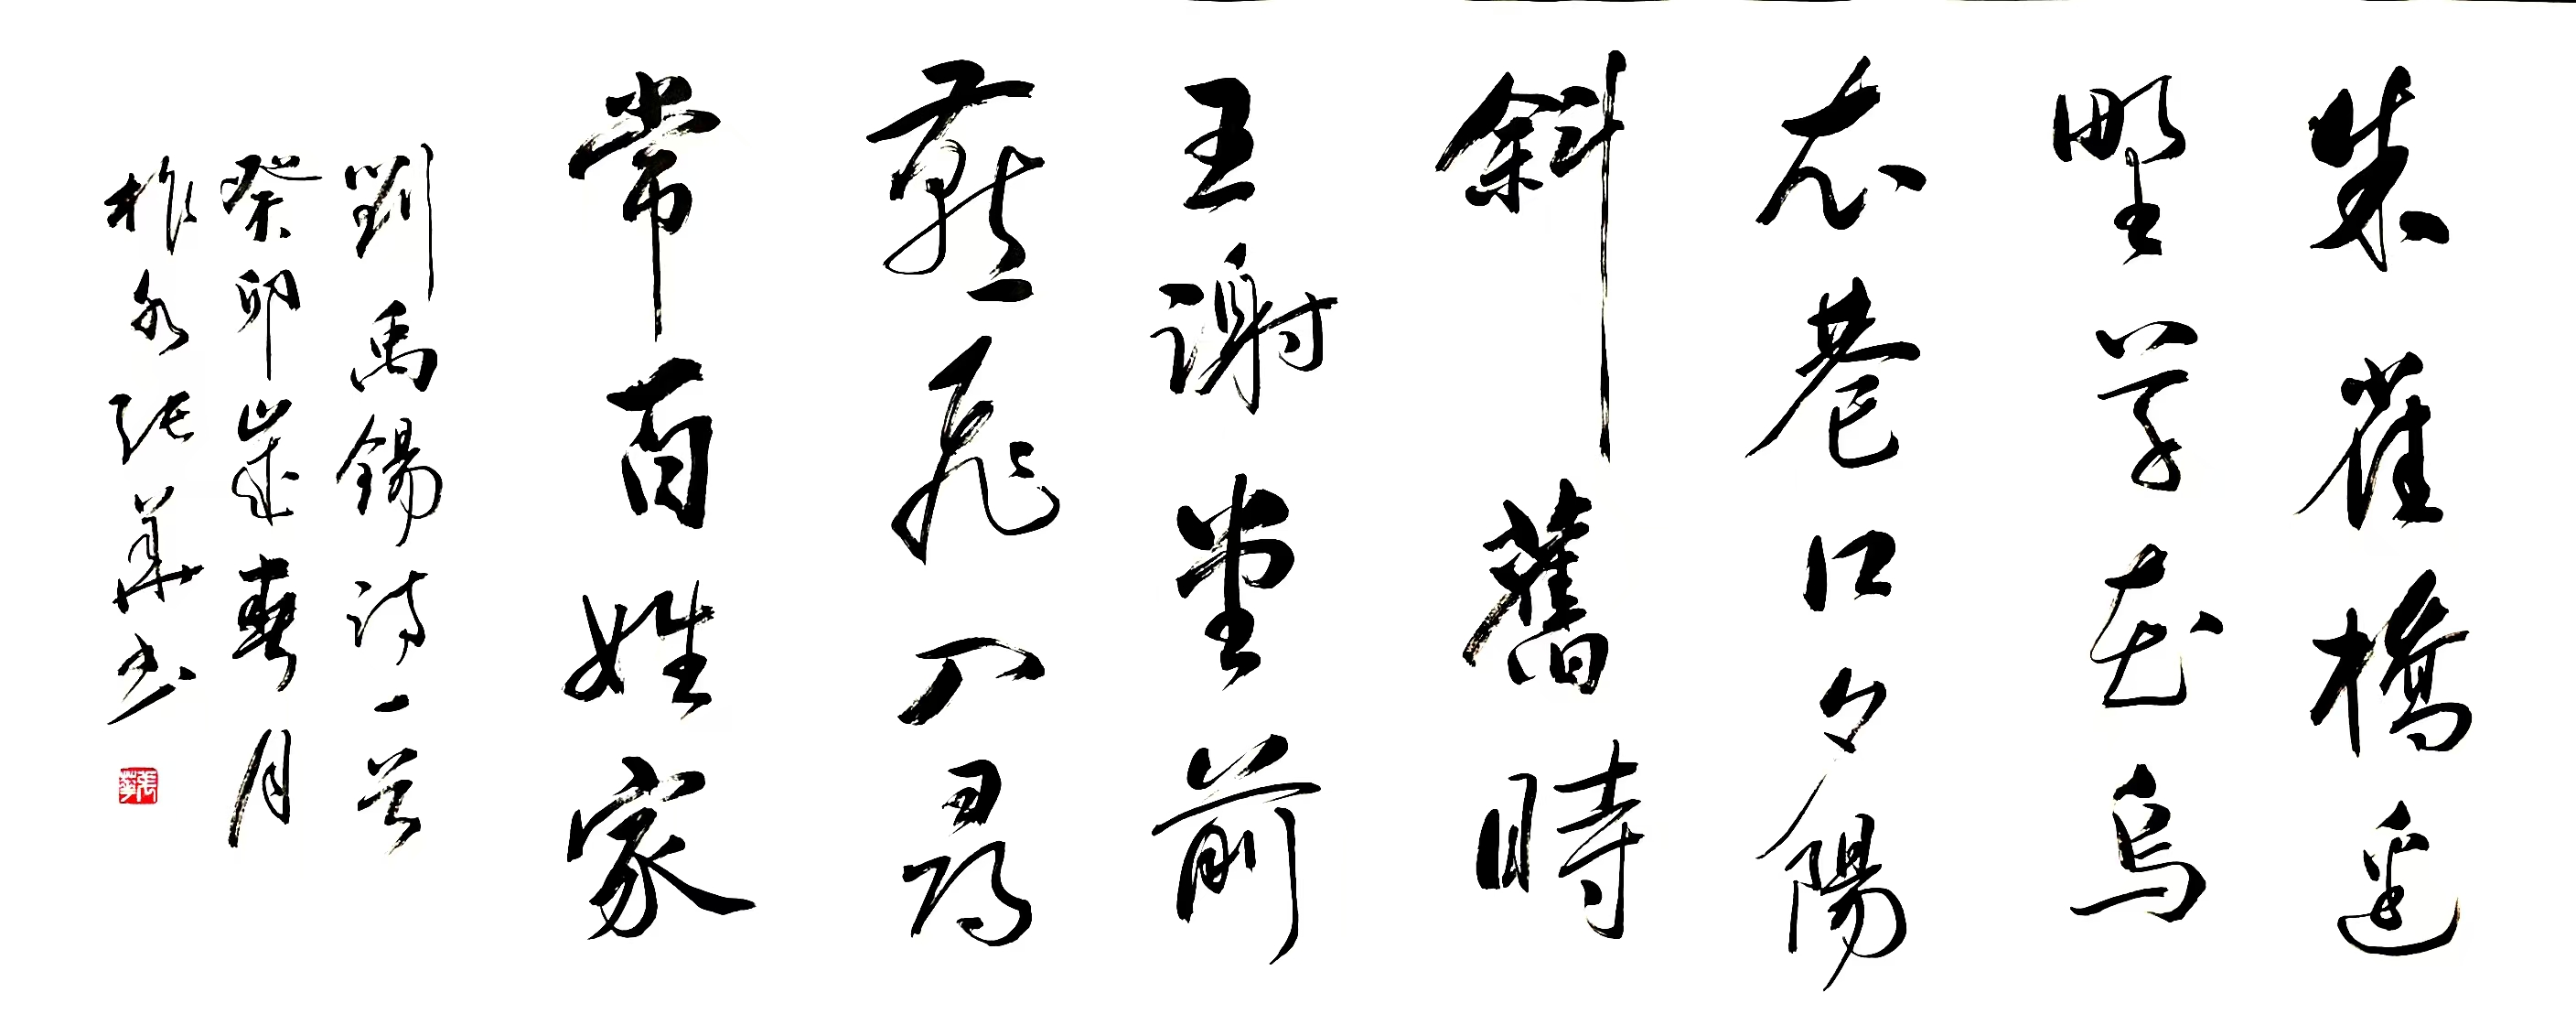 朱雀橋邊
野草花烏
衣巷口夕陽
斜舊時
王謝堂前
燕飛入尋
常百姓家
劉禹錫詩一首
癸卯歲春月
柞水張華書
張華